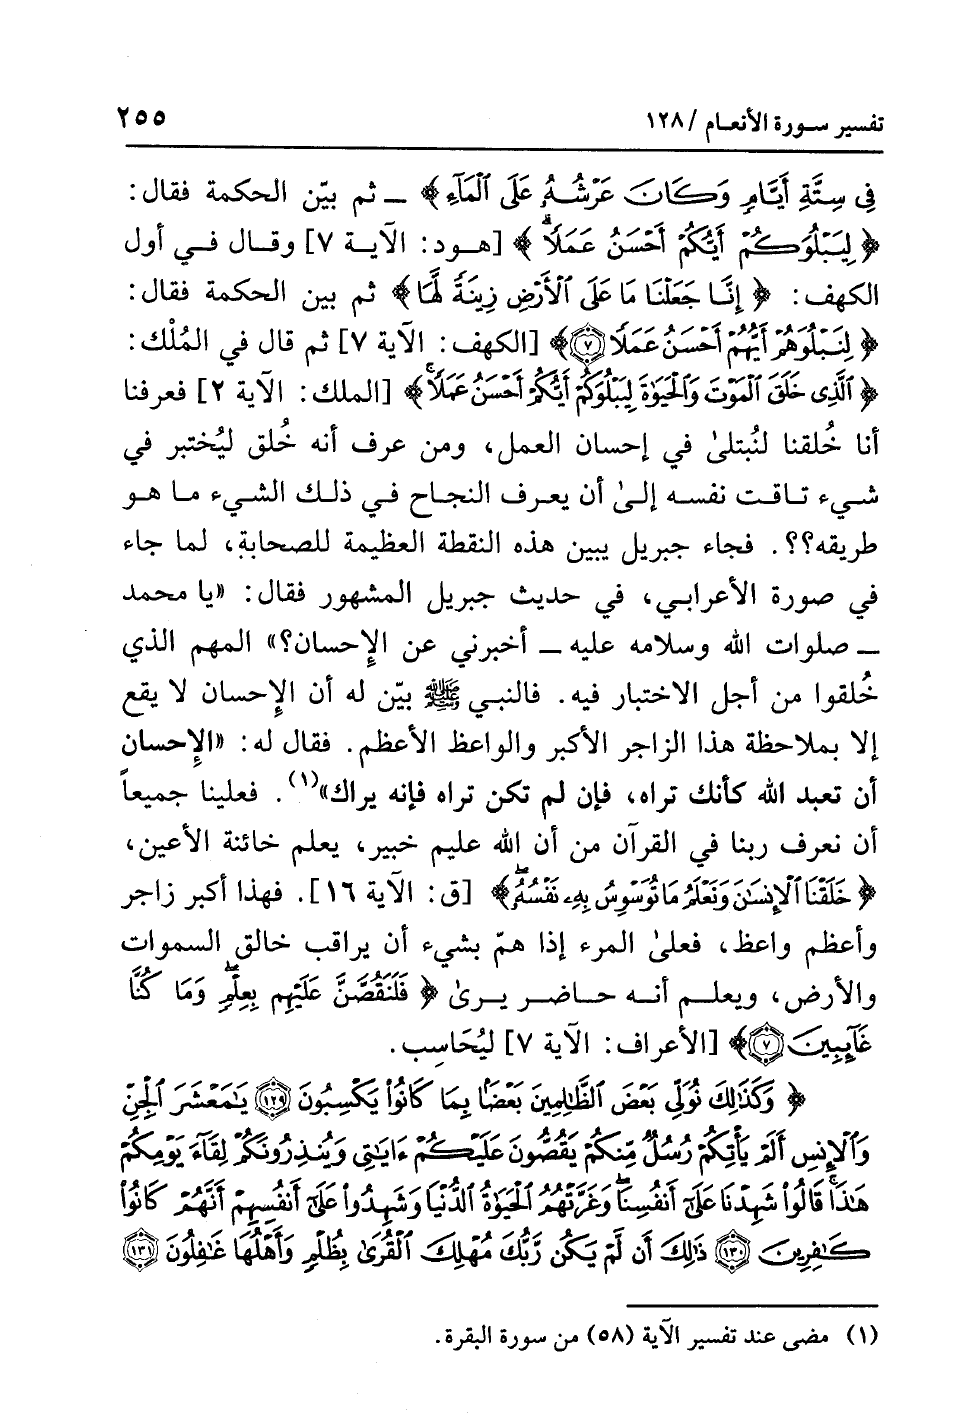 تفسير سورة الأنعام / ١٢٨ ٢٥٥
فِي سِتَّةِ أَيَّامٍ وَكَانَ عَرْشُهُ عَلَى الْمَاءِ﴾ ـ ثم بيّن الحكمة فقال:
﴿لِيَبْلُوَكُمْ أَيُّكُمْ أَحْسَنُ عَمَلًا﴾ [هود: الآية ٧] وقال في أول
الكهف: ﴿إِنَّا جَعَلْنَا مَا عَلَى الْأَرْضِ زِينَةً لَّهَا﴾ ثم بين الحكمة فقال:
﴿لِنَبْلُوَهُمْ أَيُّهُمْ أَحْسَنُ عَمَلًا ٧﴾ [الكهف: الآية ٧] ثم قال في المُلْك:
﴿الَّذِي خَلَقَ الْمَوْتَ وَالْحَيَوٰةَ لِيَبْلُوَكُمْ أَيُّكُمْ أَحْسَنُ عَمَلًا﴾ [الملك: الآية ٢] فعرفنا
أنا خُلقنا لنُبتلىٰ في إحسان العمل، ومن عرف أنه خُلق ليُختبر في
شيء تاقت نفسه إلىٰ أن يعرف النجاح في ذلك الشيء ما هو
طريقه؟؟. فجاء جبريل يبين هذه النقطة العظيمة للصحابة، لما جاء
في صورة الأعرابي، في حديث جبريل المشهور فقال: «يا محمد
ـ صلوات الله وسلامه عليه ـ أخبرني عن الإحسان؟» المهم الذي
خُلقوا من أجل الاختبار فيه. فالنبي ﷺ بيّن له أن الإحسان لا يقع
إلا بملاحظة هذا الزاجر الأكبر والواعظ الأعظم. فقال له: «الإحسان
أن تعبد الله كأنك تراه، فإن لم تكن تراه فإنه يراك»(١). فعلينا جميعاً
أن نعرف ربنا في القرآن من أن الله عليم خبير، يعلم خائنة الأعين،
﴿خَلَقْنَا الْإِنسَٰنَ وَنَعْلَمُ مَا تُوَسْوِسُ بِهِۦ نَفْسُهُۥ﴾ [ق: الآية ١٦]. فهذا أكبر زاجر
وأعظم واعظ، فعلىٰ المرء إذا همّ بشيء أن يراقب خالق السموات
والأرض، ويعلم أنه حاضر يرىٰ ﴿فَلَنَقُصَّنَّ عَلَيْهِم بِعِلْمٍ وَمَا كُنَّا
غَآئِبِينَ ٧﴾ [الأعراف: الآية ٧] ليُحَاسِب.
﴿وَكَذَٰلِكَ نُوَلِّي بَعْضَ الظَّٰلِمِينَ بَعْضًا بِمَا كَانُوا يَكْسِبُونَ ١٢٩ يَٰمَعْشَرَ الْجِنِّ
وَالْإِنسِ أَلَمْ يَأْتِكُمْ رُسُلٌ مِّنكُمْ يَقُصُّونَ عَلَيْكُمْ ءَايَٰتِي وَيُنذِرُونَكُمْ لِقَآءَ يَوْمِكُمْ
هَٰذَا قَالُوا شَهِدْنَا عَلَىٰٓ أَنفُسِنَا وَغَرَّتْهُمُ الْحَيَوٰةُ الدُّنْيَا وَشَهِدُوا عَلَىٰٓ أَنفُسِهِمْ أَنَّهُمْ كَانُوا
كَٰفِرِينَ ١٣٠ ذَٰلِكَ أَن لَّمْ يَكُن رَّبُّكَ مُهْلِكَ الْقُرَىٰ بِظُلْمٍ وَأَهْلُهَا غَٰفِلُونَ ١٣١
(١) مضى عند تفسير الآية (٥٨) من سورة البقرة.